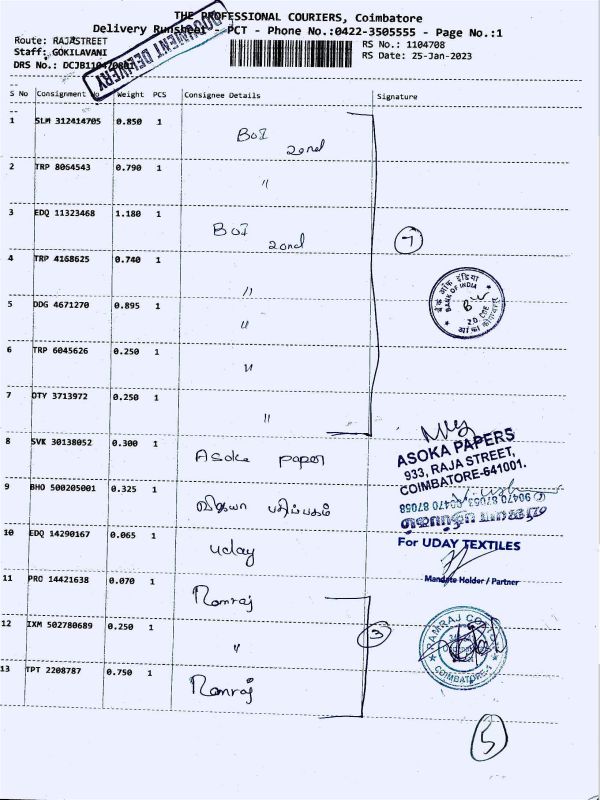 THE PROFESSIONAL COURIERS, Coimbatore
Delivery Runsheet - PCT - Phone No.:0422-3505555 - Page No.:1
Route: RAJASTREET
RS No.: 1104708
Staff: GOKILAVANI
RS Date: 25-Jan-2023
DRS No.: DCJB1104708
DOCUMENT DELIVERY
S No Consignment No Weight PCS Consignee Details Signature
1 SLM 312414705 0.850 1 BOI 20nd
2 TRP 8064543 0.790 1 "
3 EDQ 11323468 1.180 1 BOI 20nd
7
4 TRP 4168625 0.740 1 "
बैंक ऑफ इंडिया
BANK OF INDIA
5 DDG 4671270 0.895 1 "
6 TRP 6045626 0.250 1 "
7 DTY 3713972 0.250 1 "
8 SVK 30138052 0.300 1 Asoka paper
ASOKA PAPERS
933, RAJA STREET,
COIMBATORE-641001.
9 BHO 500205001 0.325 1 விஜயா பதிப்பகம்
90470 87053, 90470 87058
10 EDQ 14290167 0.065 1 uday
For UDAY TEXTILES
Mandate Holder / Partner
11 PRO 14421638 0.070 1 Ramraj
12 IXM 502780689 0.250 1 "
3
RAMRAJ COTTON
COIMBATORE-1
13 TPT 2208787 0.750 1 Ramraj
5